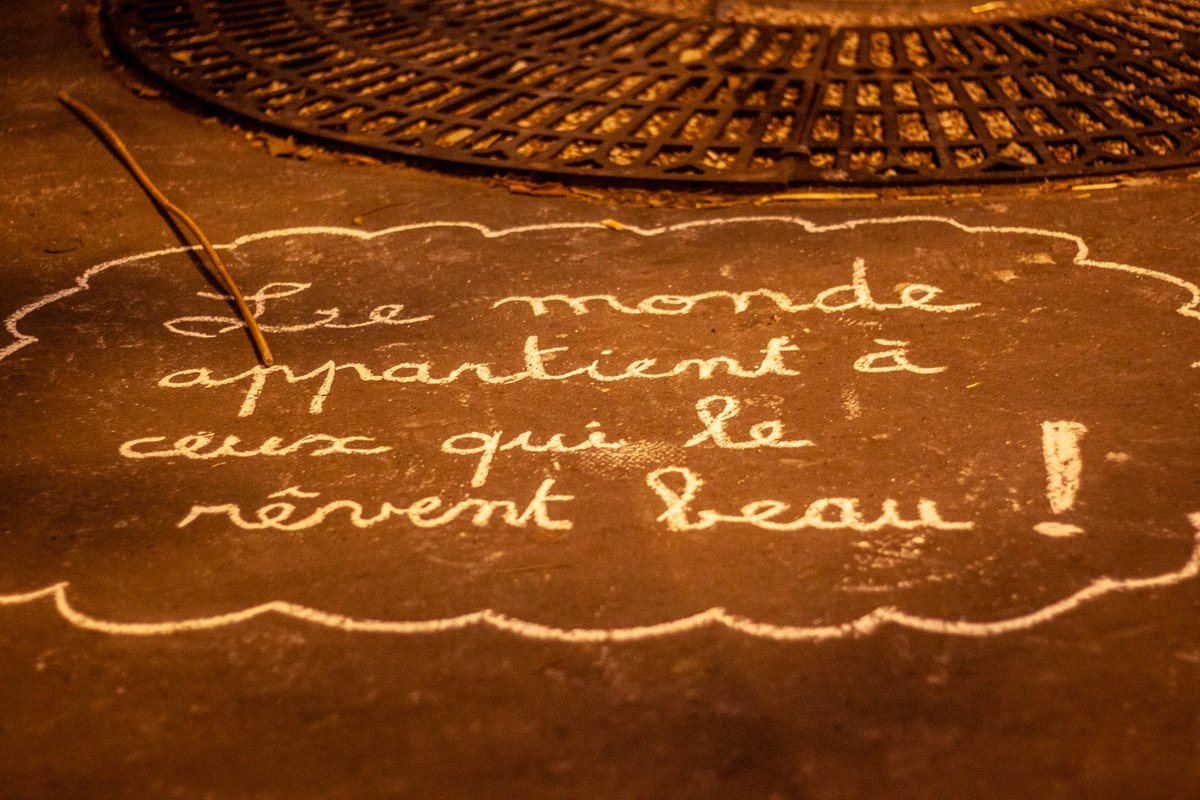 Le monde
appartient à
ceux qui le
rêvent beau !